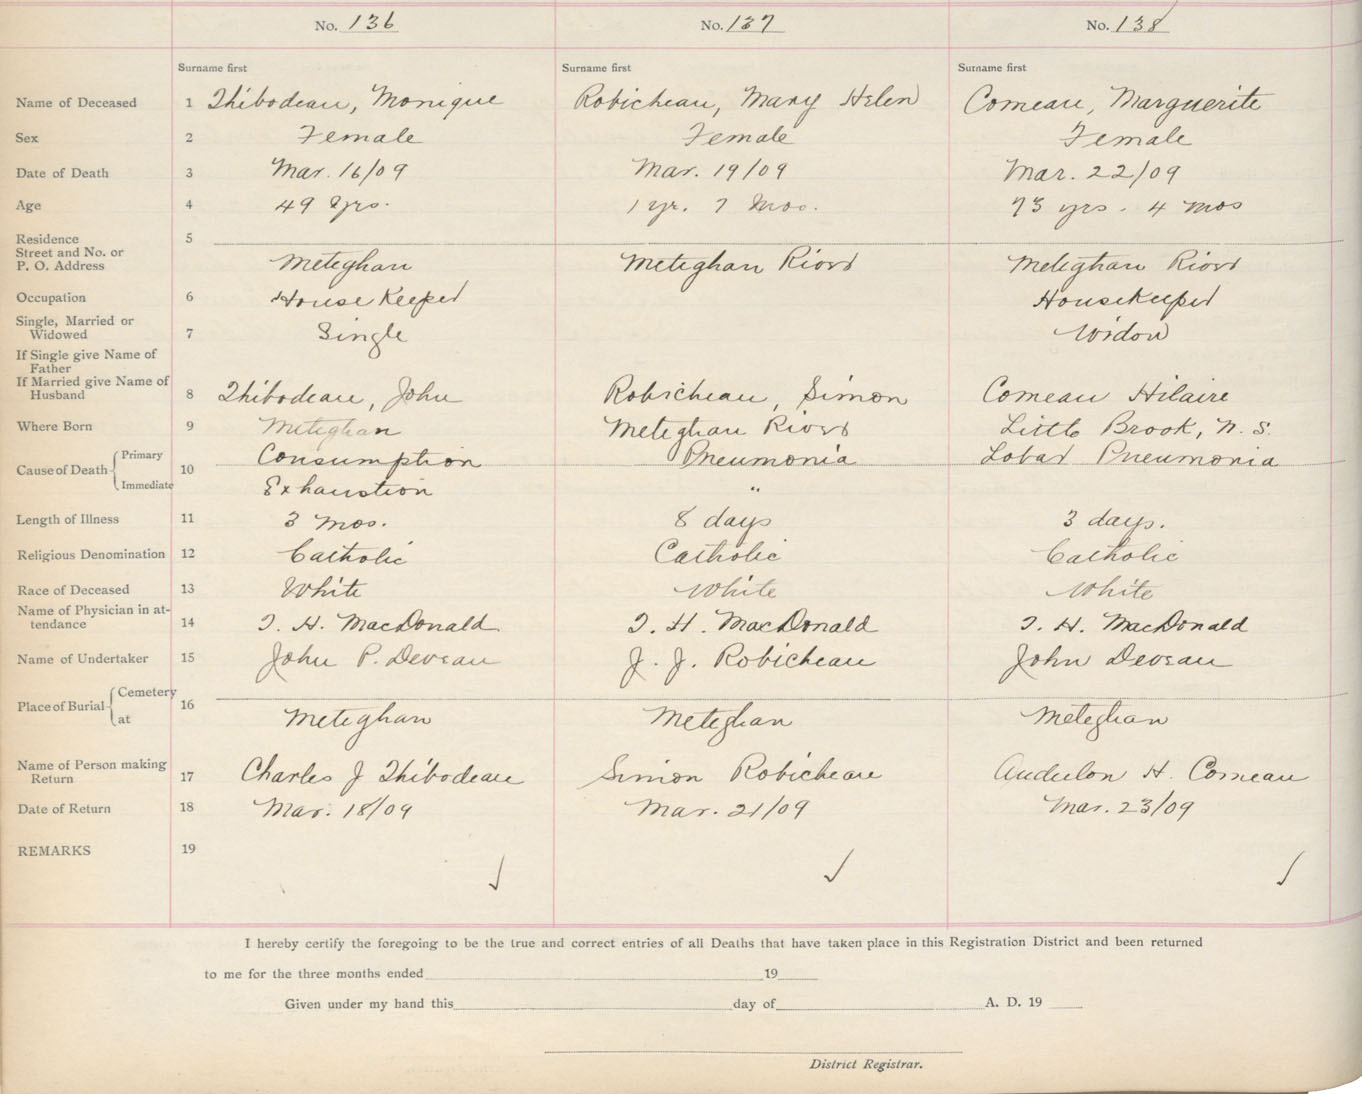 No. 136 No. 137 No. 138
Surname first Surname first Surname first
Name of Deceased 1 Thibodeau, Monique Robicheau, Mary Helen Comeau, Marguerite
Sex 2 Female Female Female
Date of Death 3 Mar. 16/09 Mar. 19/09 Mar. 22/09
Age 4 49 yrs. 1 yr. 7 Mos. 73 yrs. 4 mos
Residence 5
Street and No. or
P. O. Address Meteghan Meteghan River Meteghan River
Occupation 6 House Keeper Housekeeper
Single, Married or
Widowed 7 Single Widow
If Single give Name of
Father
If Married give Name of
Husband 8 Thibodeau, John Robicheau, Simon Comeau Hilaire
Where Born 9 Meteghan Meteghan River Little Brook, N. S.
Cause of Death Primary 10 Consumption Pneumonia Lobar Pneumonia
Immediate Exhaustion "
Length of Illness 11 3 mos. 8 days 3 days.
Religious Denomination 12 Catholic Catholic Catholic
Race of Deceased 13 White White White
Name of Physician in at-
tendance 14 T. H. MacDonald T. H. MacDonald T. H. MacDonald
Name of Undertaker 15 John P. Deveau J. J. Robicheau John Deveau
Place of Burial Cemetery 16
at Meteghan Meteghan Meteghan
Name of Person making
Return 17 Charles J Thibodeau Simon Robicheau H. Comeau
Date of Return 18 Mar. 18/09 Mar. 21/09 Mar. 23/09
REMARKS 19
I hereby certify the foregoing to be the true and correct entries of all Deaths that have taken place in this Registration District and been returned
to me for the three months ended 19
Given under my hand this day of A. D. 19
District Registrar.